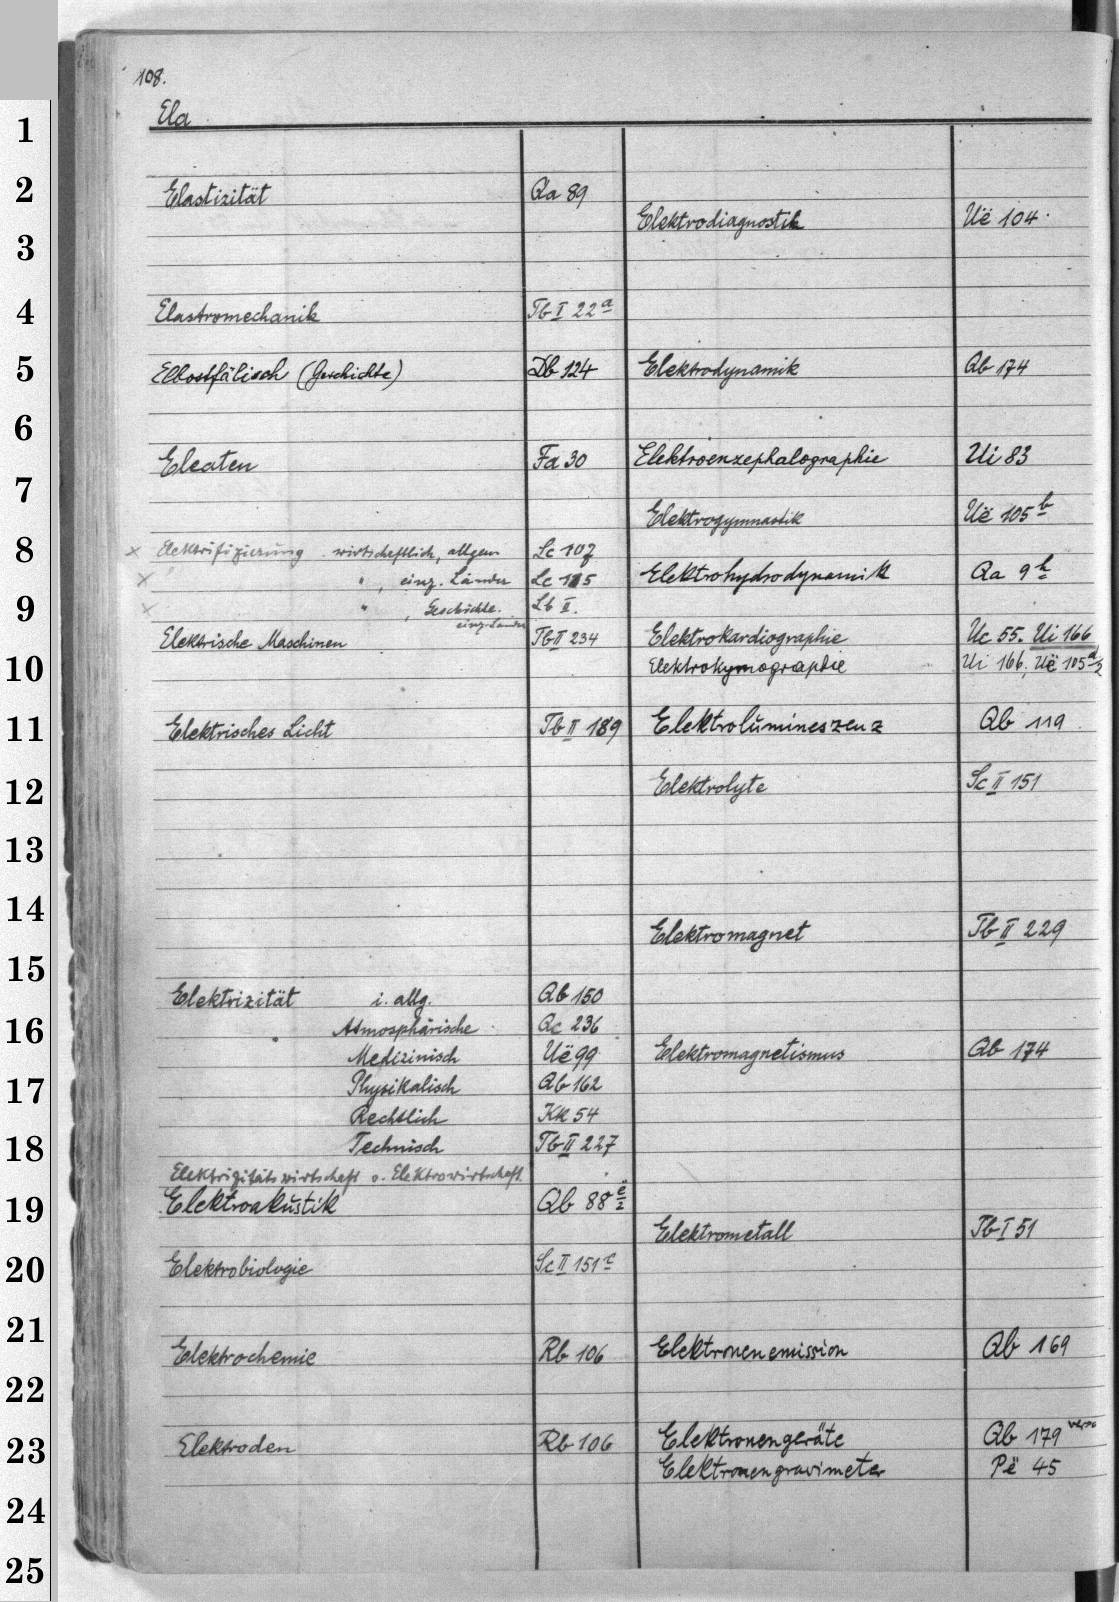 108.
Ela
Elastizität Qa 89
Elastromechanik Tb I 22a
Elbostfälisch (Geschichte) Db 124
Eleaten Fa 30
× Elektrifizierung wirtschaftlich, allgem Lc 107
× " , einz. Länder Lc 115
× " , Geschichte. Lb II.
einz. Länder
Elektrische Maschinen Tb II 234
Elektrisches Licht Tb II 189
Elektrizität i. allg. Qb 150
Atmosphärische Qc 236
Medizinisch Uë 99
Physikalisch Qb 162
Rechtlich Kk 54
Technisch Tb II 227
Elektrizitätswirtschaft s. Elektrowirtschaft.
Elektroakustik Qb 88 e/2
Elektrobiologie Sc II 151c
Elektrochemie Rb 106
Elektroden Rb 106
Elektrodiagnostik Uë 104
Elektrodynamik Qb 174
Elektroenzephalographie Ui 83
Elektrogymnastik Uë 105b
Elektrohydrodynamik Qa 9h
Elektrokardiographie Uc 55. Ui 166
Elektrokymographie Ui 166, Uë 105a/2
Elektrolumineszenz Qb 119
Elektrolyte Sc II 151
Elektromagnet Tb II 229
Elektromagnetismus Qb 174
Elektrometall Tb I 51
Elektronenemission Qb 169
Elektronengeräte Qb 179 verso
Elektronengravimeter Pë 45
1
2
3
4
5
6
7
8
9
10
11
12
13
14
15
16
17
18
19
20
21
22
23
24
25